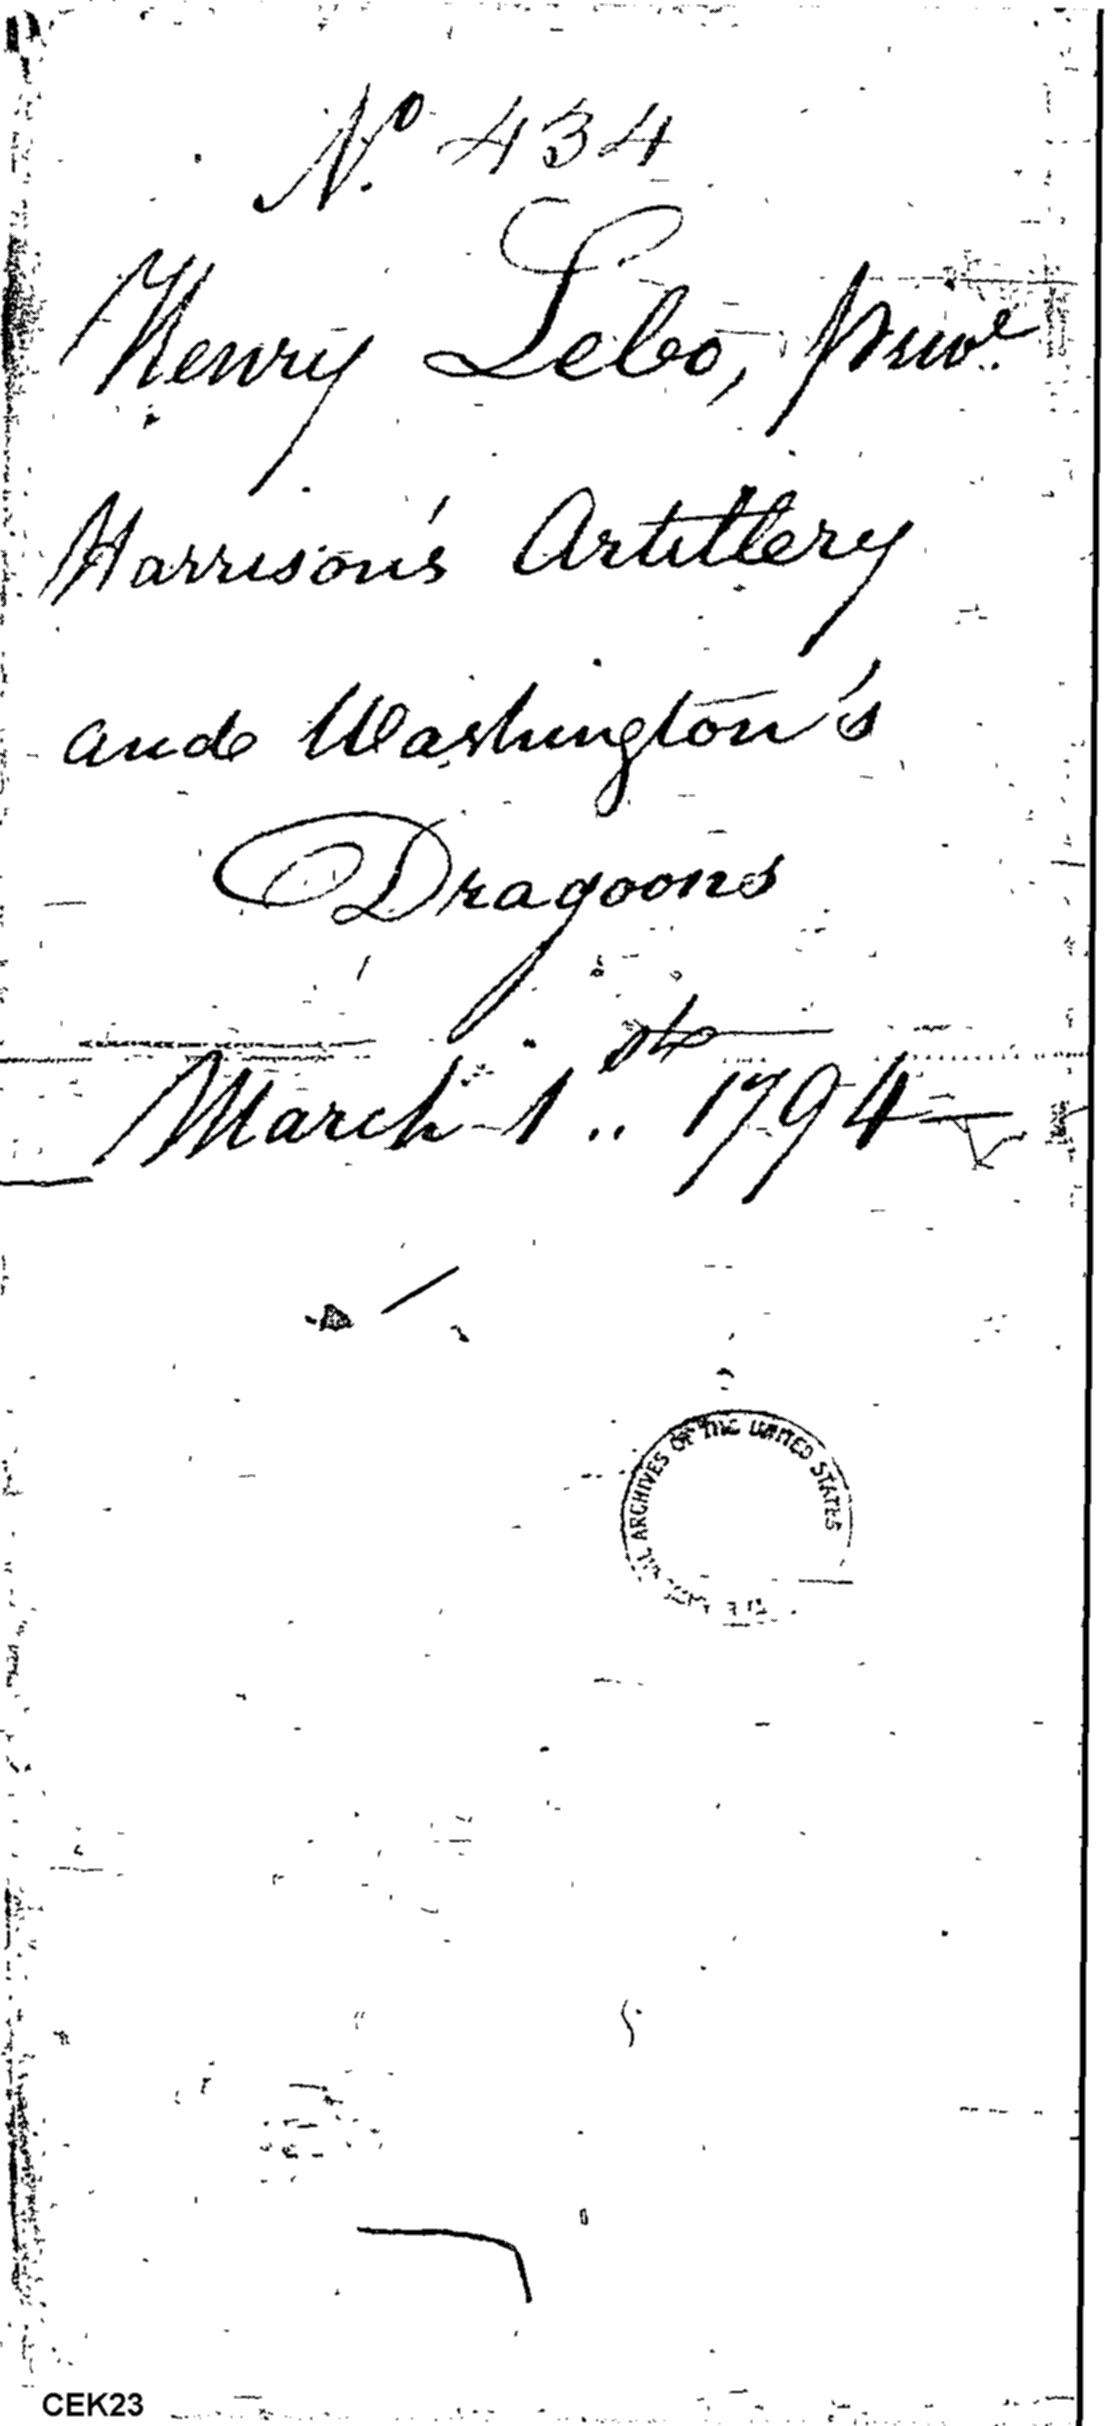 No 434
Henry Lebo, prive.
Harrison's Artillery
and Washington's
Dragoons
March 1st 1794
ARCHIVES OF THE UNITED STATES
CEK23